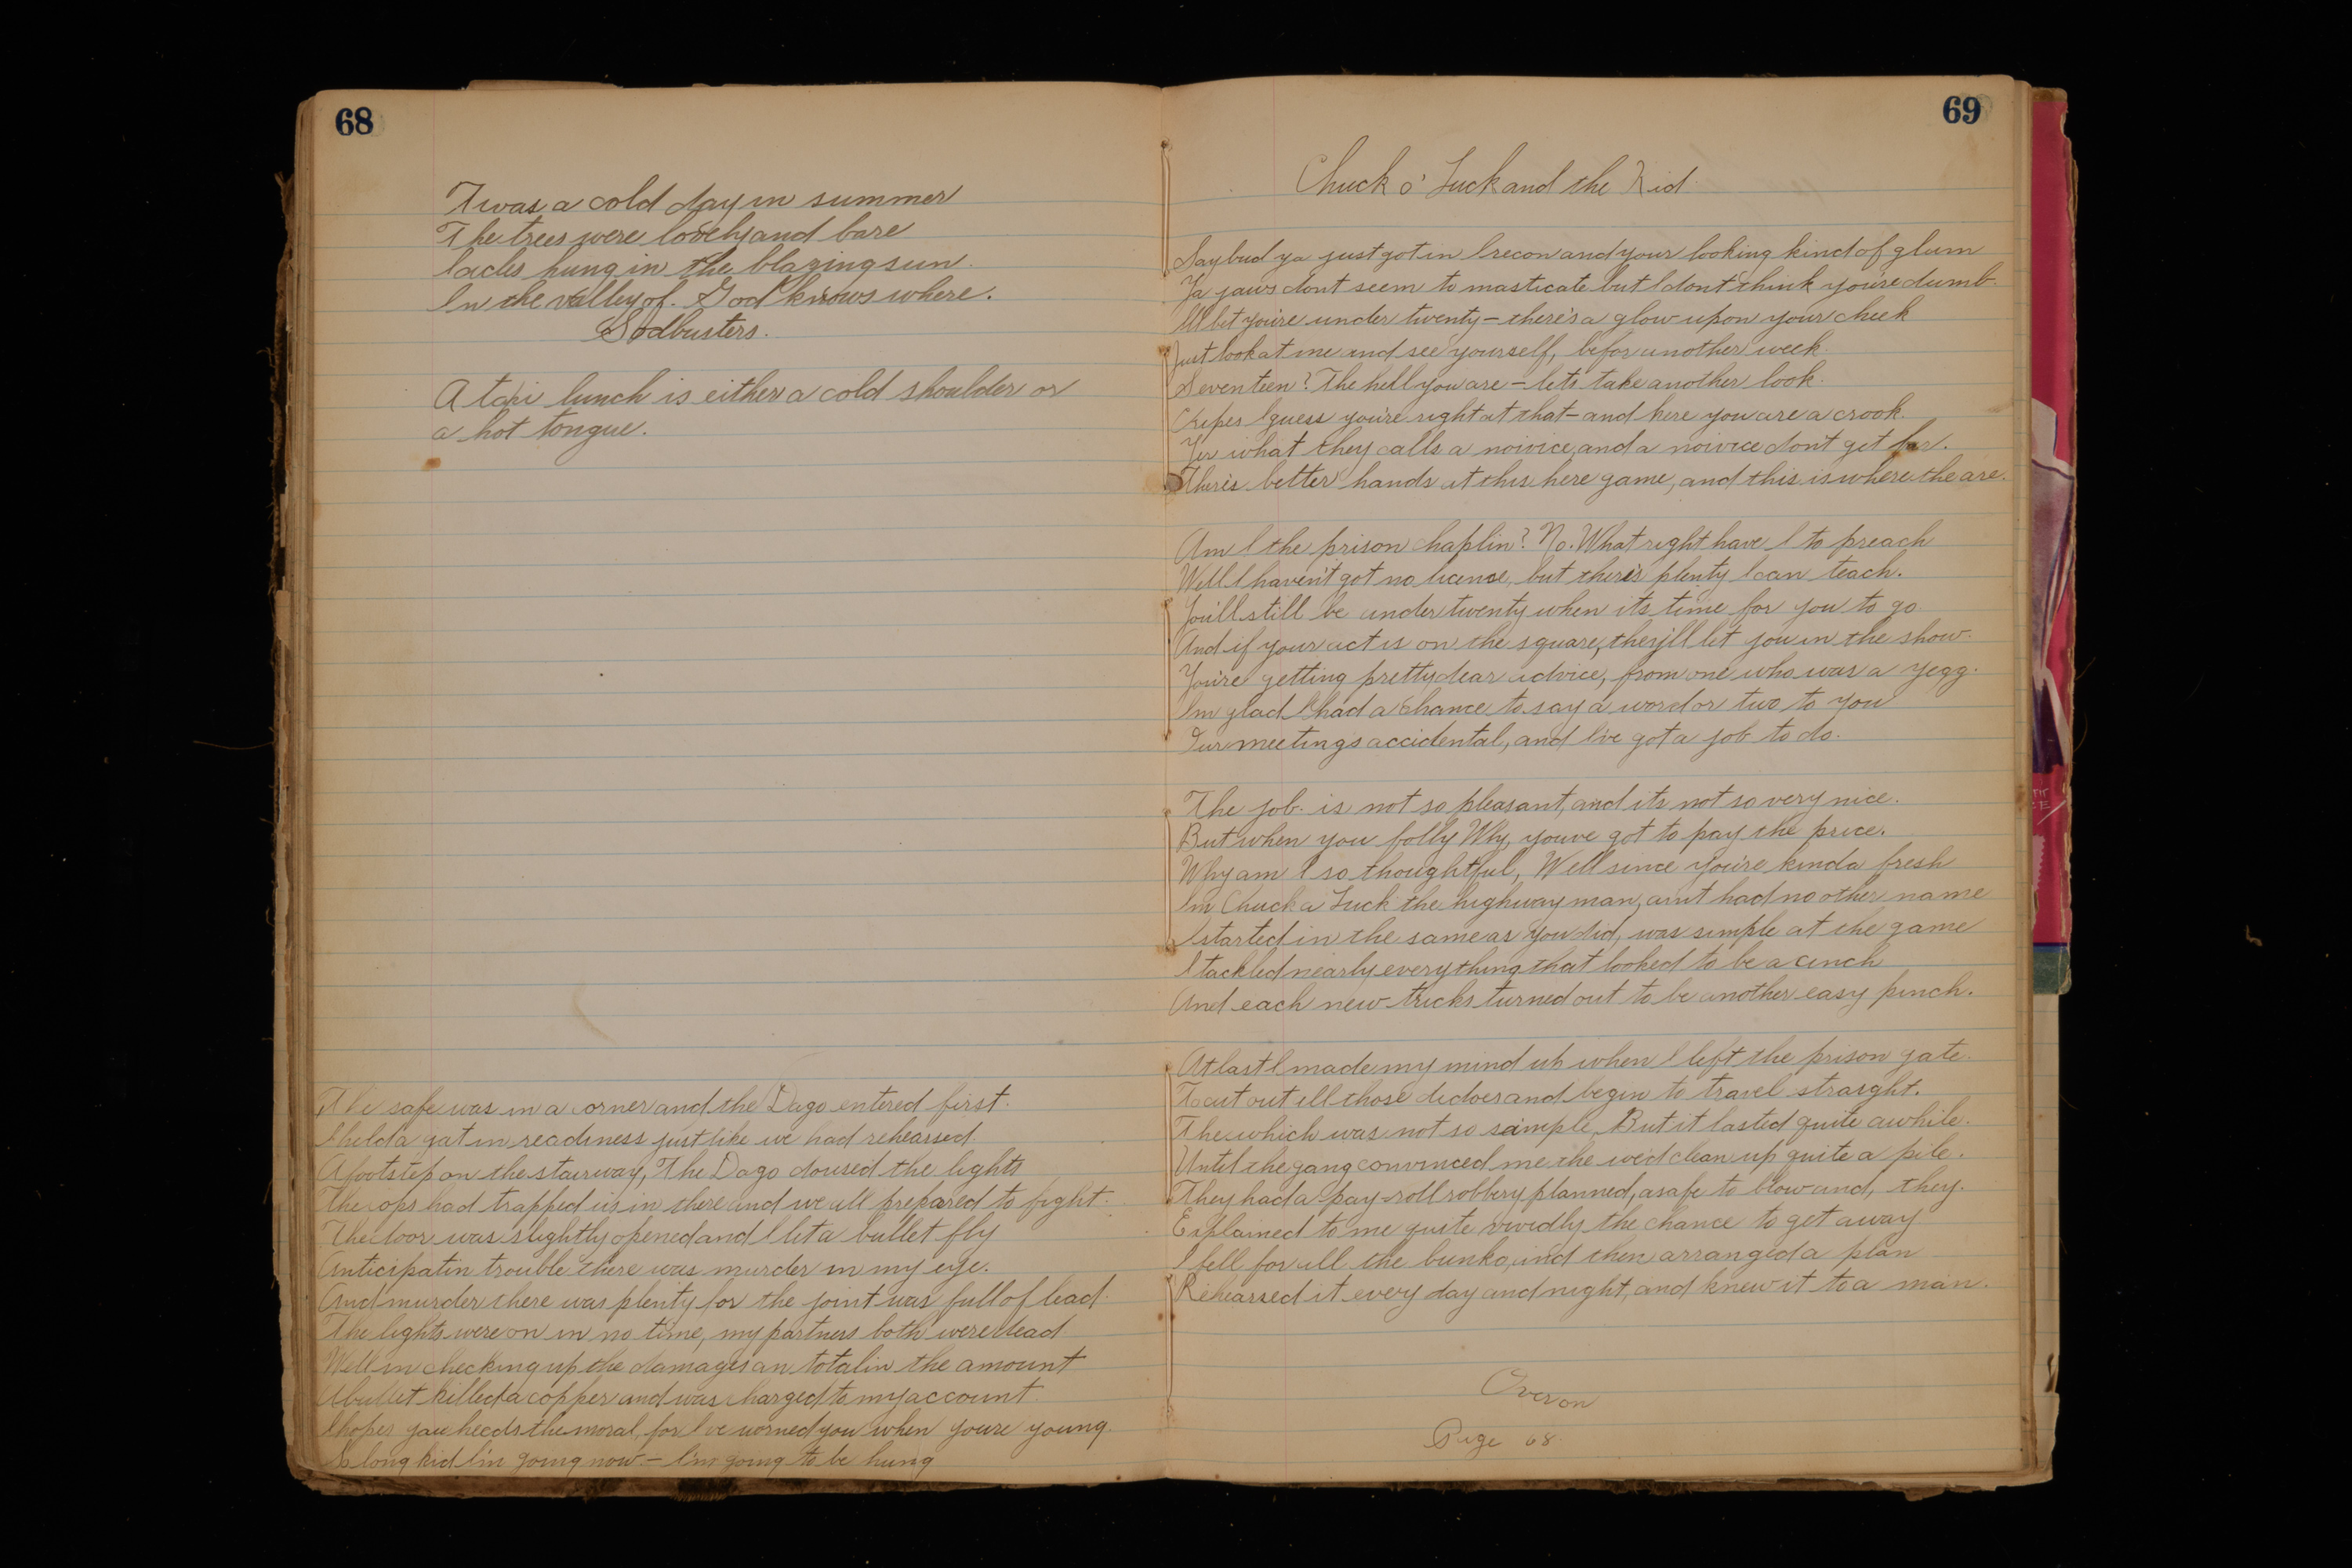 68
Twas a cold day in summer
The trees were lovely and bare
Icicles hung in the blazing sun.
In the valley of. God knows where.
Sodbusters.
A taxi lunch is either a cold shoulder or
a hot tongue.
The safe was in a corner and the Dago entered first.
I held a gat in readiness just like we had rehearsed.
A footstep on the stairway, The Dago doused the lights
The cops had trapped us in there and we all prepared to fight.
The door was slightly opened and I let a bullet fly
Anticipatin trouble there was murder in my eye.
And murder there was plenty for the joint was full of lead.
The lights were on in no time, my partners both were dead
Well in checking up the damages an totalin the amount
A bullet killed a copper and was charged to my account.
I hopes you heeds the moral, for I've worned you when youre young.
So long kid I'm going now. – I'm going to be hung
69
Chuck o' Luck and the Kid.
Say bud ya just got in I recon and your looking kind of glum
Ya jaws dont seem to masticate but I dont think you're dumb.
I'll bet you're under twenty – there's a glow upon your cheek
Just look at me and see yourself, befor another week.
Seventeen? The hell you are – lets take another look.
Cripes I guess you're right at that – and here you are a crook.
Yer what they calls a novice, and a novice dont get far.
There's better hands at this here game, and this is where the are.
Am I the prison chaplin? No. What right have I to preach
Well I haven't got no license, but there's plenty I can teach.
You'll still be under twenty when its time for you to go.
And if your act is on the square, they'll let you in the show.
You're getting pretty dear advice, from one who was a yegg.
Im glad I had a chance to say a word or two to you
Our meetings accidental, and I've got a job to do.
The job is not so pleasant, and its not so very nice.
But when you folly Why, youve got to pay the price.
Why am I so thoughtful, Well since you're kinda fresh
Im Chuck a Luck the highway man, aint had no other name
I started in the same as you did, was simple at the game
I tackled nearly everything that looked to be a cinch
And each new tricks turned out to be another easy pinch.
At last I made my mind up when I left the prison gate.
To cut out all those didoes and begin to travel straight.
The which was not so simple, But it lasted quite awhile.
Until the gang convinced me the we'd clean up quite a pile.
They had a pay-roll robbery planned, a safe to blow and, they.
Explained to me quite vividly the chance to get away
I fell for all the bunko, and then arranged a plan
Rehearsed it every day and night, and knew it to a man.
Over on
Page 68.